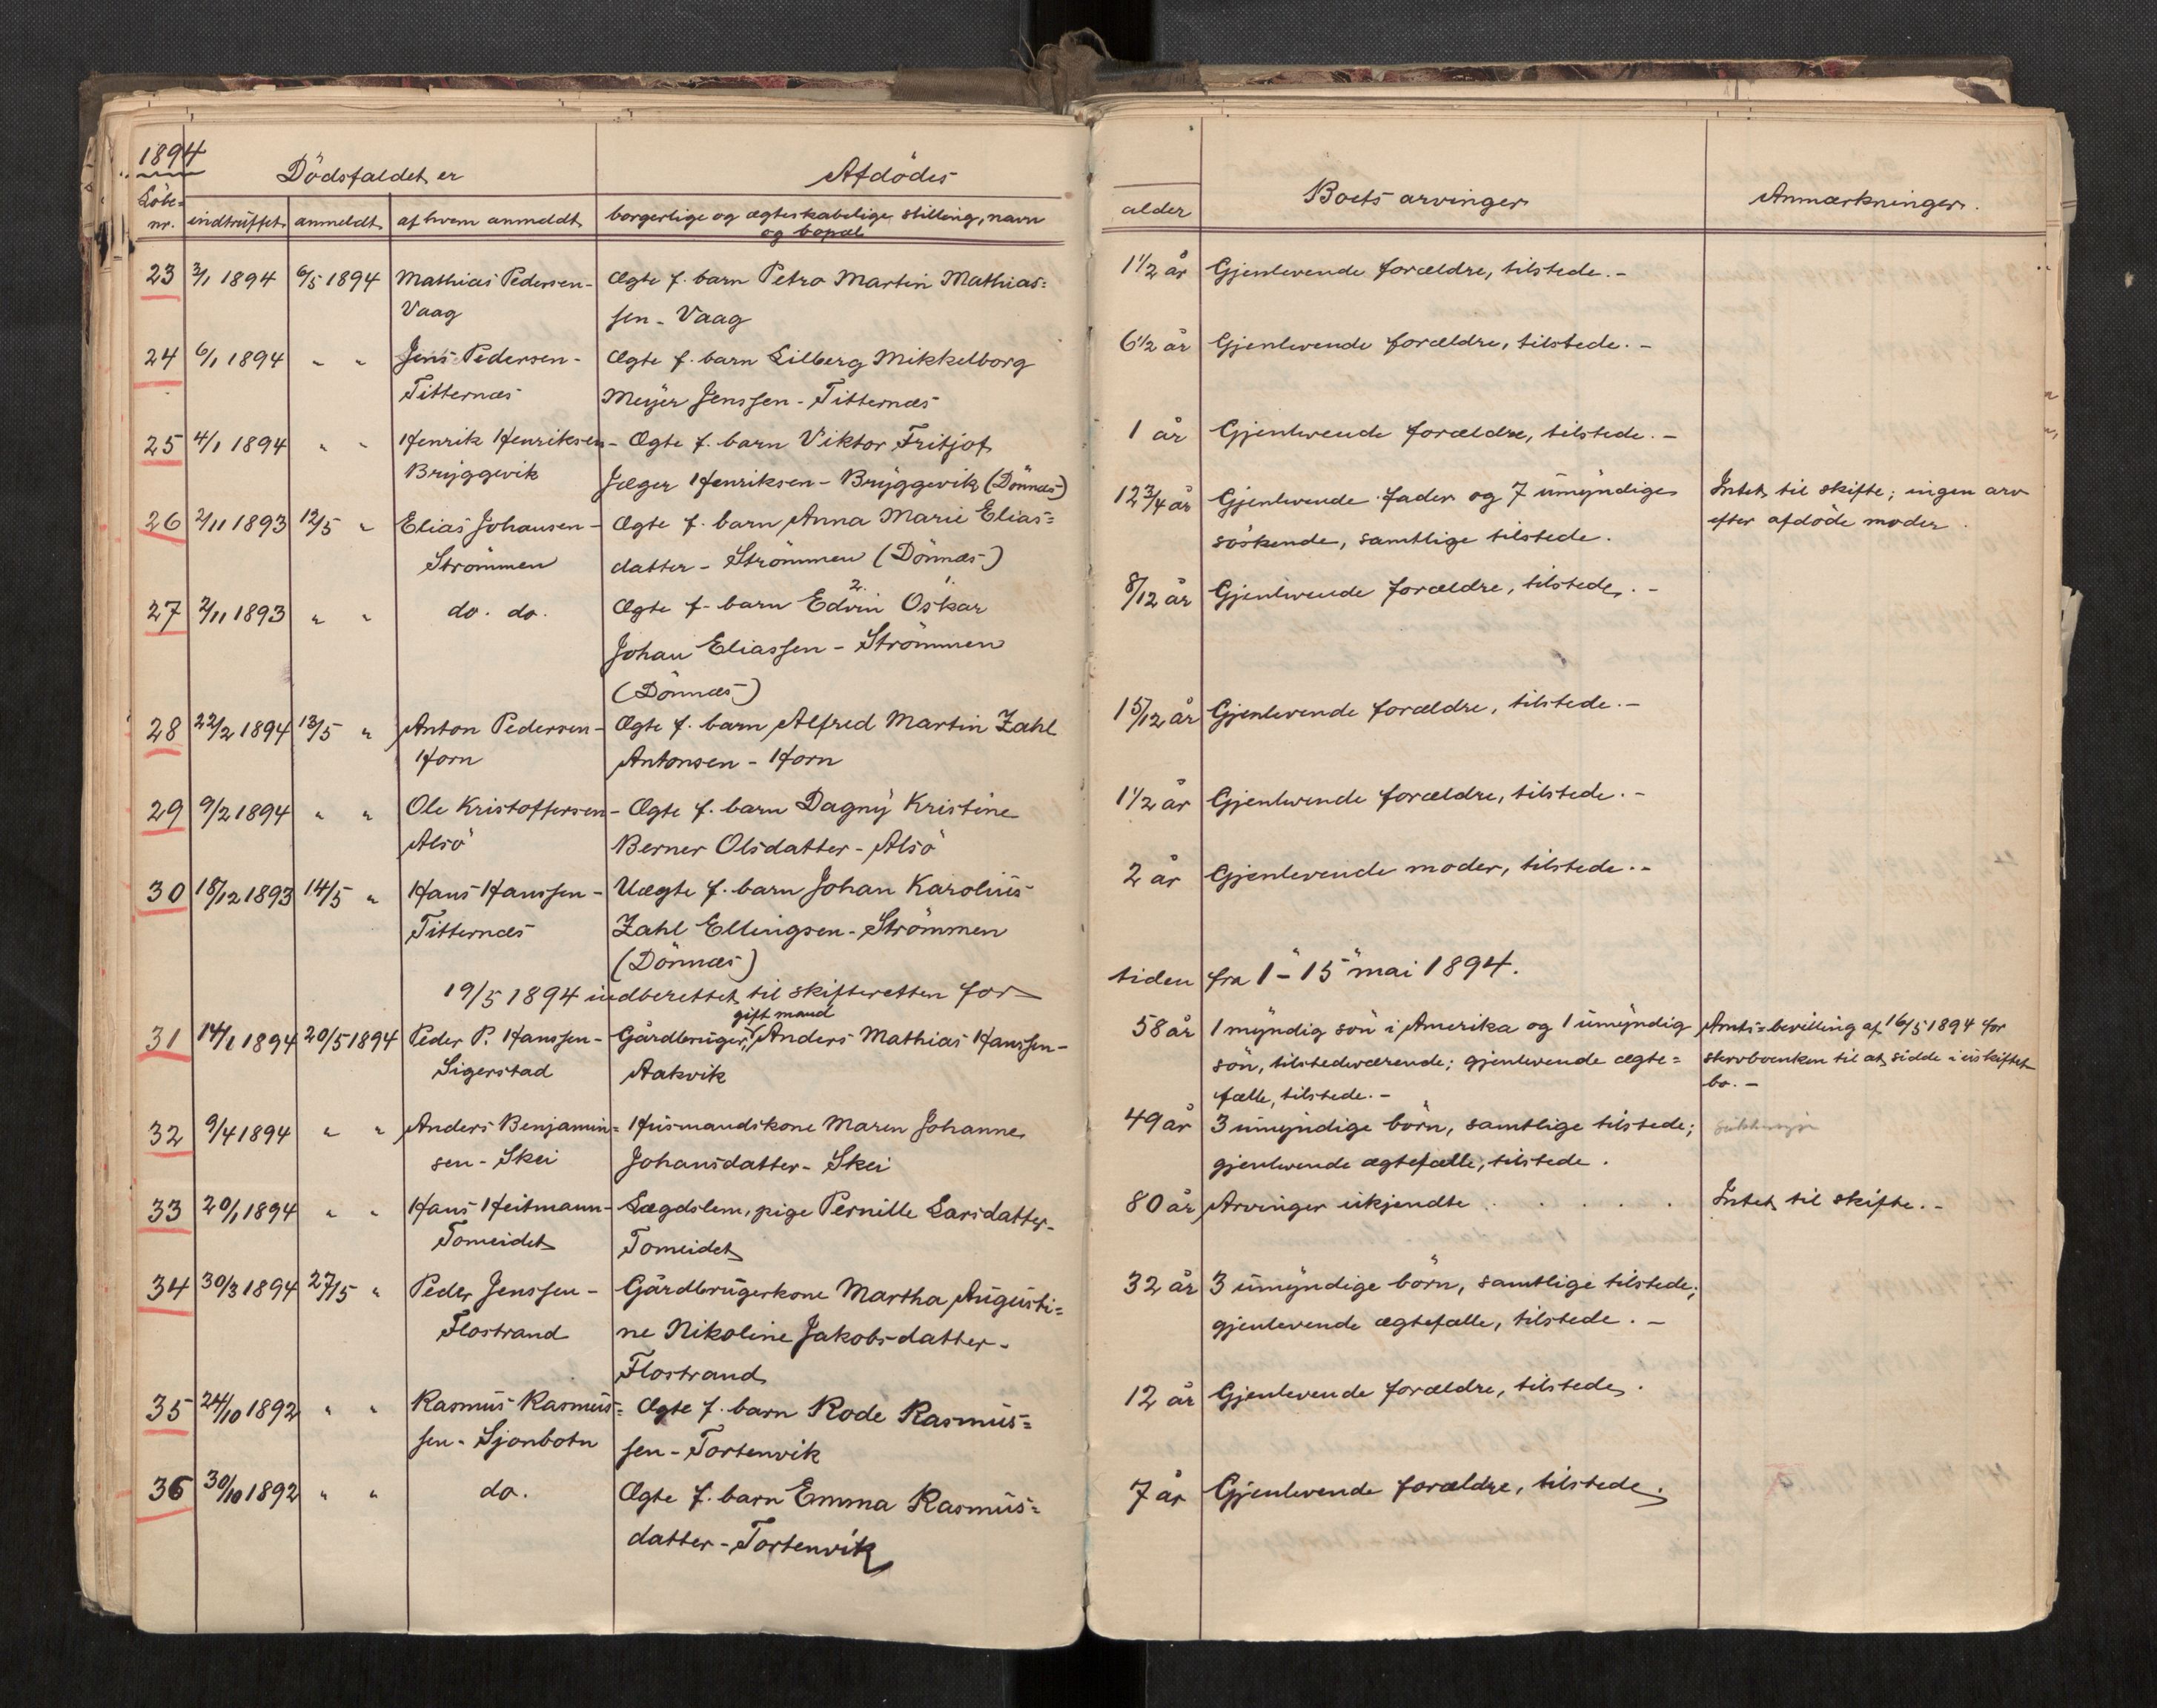 1894
Dödsfaldet er
Afdödes
Löbe-
nr.
indtruffet
anmeldt
af hvem anmeldt
borgerlige og ægteskabelige stilling, navn
og bopæl
23 3/1 1894 6/5 1894 Mathias Pedersen- Ægte f. barn Petra Martin Mathias=
Vaag sen - Vaag
24 6/1 1894 " " Jens Pedersen- Ægte f. barn Lilberg Mikkelborg
Titternæs Meyer Jenssen - Titternæs
25 4/1 1894 " " Henrik Henriksen- Ægte f. barn Viktor Fritjof
Bryggevik Jæger Henriksen - Bryggevik (Dönnæs)
26 2/11 1893 12/5 " Elias Johansen- Ægte f. barn Anna Marie Elias=
Strömmen datter - Strömmen (Dönnæs)
27 2/11 1893 " " do. do. Ægte f. barn Edvin 2. Oskar
Johan Eliassen - Strömmen
(Dönnæs)
28 22/2 1894 13/5 " Anton Pedersen- Ægte f. barn Alfred Martin Zahl
Horn Antonsen - Horn
29 9/2 1894 " " Ole Kristoffersen- Ægte f. barn Dagny Kristine
Alsö Berner Olsdatter - Alsö
30 18/12 1893 14/5 " Hans Hanssen- Uægte f. barn Johan Karolius
Titternæs Zahl Ellingsen - Strömmen
(Dönnæs)
19/5 1894 indberettet til skifteretten for
gift mand
31 14/1 1894 20/5 1894 Peder P. Hanssen- Gårdbruger, Anders Mathias Hanssen-
Sigerstad Aakvik
32 9/4 1894 " " Anders Benjamin= Husmandskone Maren Johanne
sen - Skei Johansdatter - Skei
33 20/1 1894 " " Hans Heitmann- Lægdslem, pige Pernille Larsdatter-
Tomeidet Tomeidet
34 30/3 1894 27/5 " Peder Jenssen- Gårdbrugerkone Martha Augusti=
Flostrand ne Nikoline Jakobsdatter-
Flostrand
35 24/10 1892 " " Rasmus Rasmus= Ægte f. barn Rode Rasmus=
sen - Sjonbotn sen - Tortenvik
36 30/10 1892 " " do. Ægte f. barn Emma Rasmus=
datter - Tortenvik
alder
Boets arvinger
Anmærkninger.
1 1/2 år Gjenlevende forældre, tilstede.-
6 1/2 år Gjenlevende forældre, tilstede.-
1 år Gjenlevende forældre, tilstede.-
12 3/4 år Gjenlevende fader og 7 umyndige Intet til skifte; ingen arv
söskende, samtlige tilstede. efter afdöde moder.
8/12 år Gjenlevende forældre, tilstede.-
15/12 år Gjenlevende forældre, tilstede.-
1 1/2 år Gjenlevende forældre, tilstede.-
2 år Gjenlevende moder, tilstede.-
tiden fra 1 - 15 mai 1894.
58 år 1 myndig sön i Amerika og 1 umyndig Amts-bevilling af 16/5 1894 for
sön, tilstedeværende; gjenlevende ægte= stervboenken til at sidde i uskiftet
fælle, tilstede.- bo.-
49 år 3 umyndige börn, samtlige tilstede;
gjenlevende ægtefælle, tilstede.
80 år Arvinger ukjendte . . . . Intet til skifte.-
32 år 3 umyndige börn, samtlige tilstede;
gjenlevende ægtefælle, tilstede.-
12 år Gjenlevende forældre, tilstede.
7 år Gjenlevende forældre, tilstede.